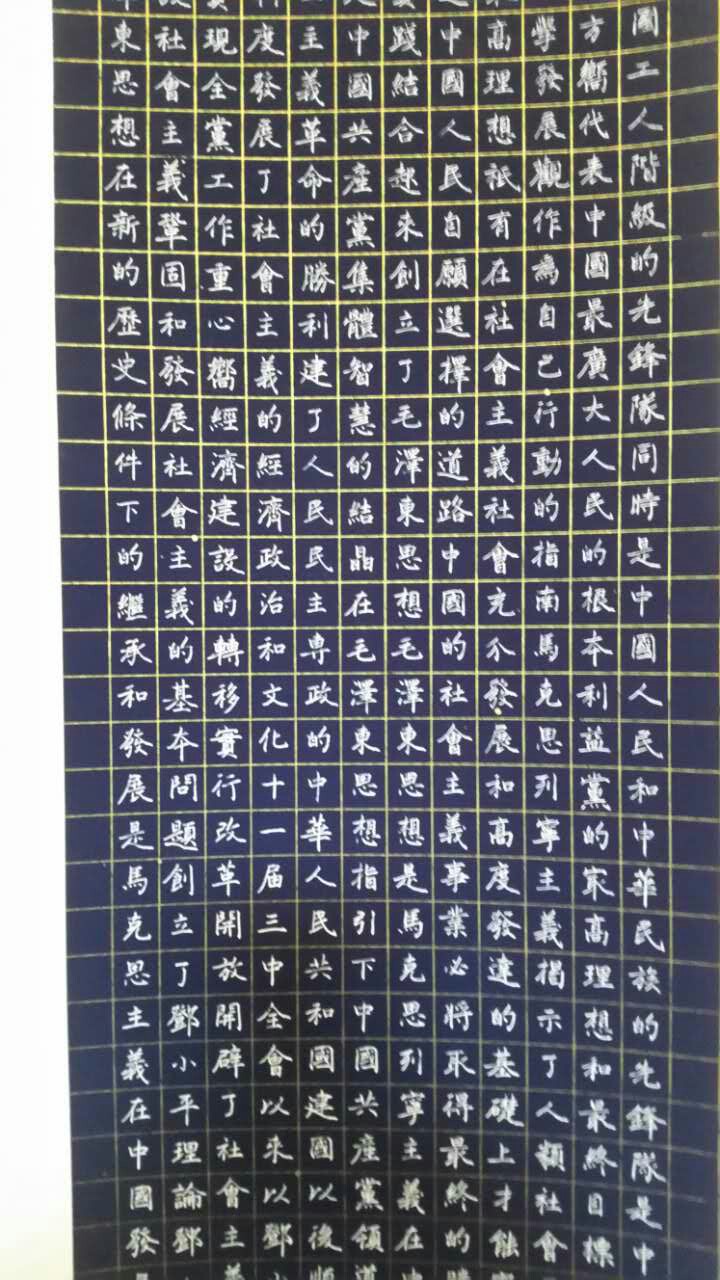 國工人階級的先鋒隊同時是中國人民和中華民族的先鋒隊是中
方嚮代表中國最廣大人民的根本利益黨的冣高理想和最終目標
學發展觀作為自己行動的指南馬克思列寧主義揭示了人類社會
高理想衹有在社會主義社會充分發展和高度發達的基礎上才能
中國人民自願選擇的道路中國的社會主義事業必將取得最終的
踐結合起來創立了毛澤東思想毛澤東思想是馬克思列寧主義在
中國共產黨集體智慧的結晶在毛澤東思想指引下中國共產黨領道
主義革命的勝利建了人民民主專政的中華人民共和國建國以後順
度發展了社會主義的經濟政治和文化十一届三中全會以來以鄧小
現全黨工作重心嚮經濟建設的轉移實行改革開放開辟了社會主義
社會主義鞏固和發展社會主義的基本問題創立了鄧小平理論鄧
東思想在新的歷史條件下的繼承和發展是馬克思主義在中國發